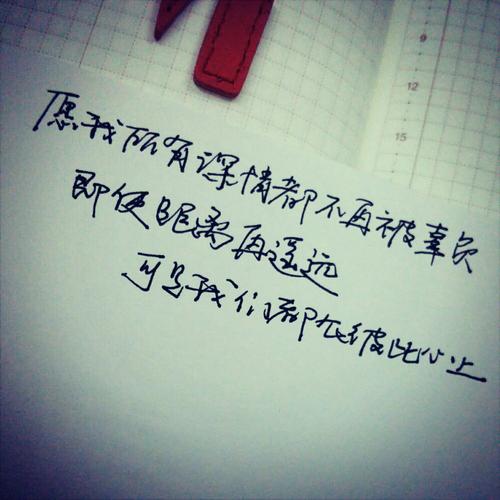 9
12
15
愿我所有深情都不再被辜负
即便距离再遥远
可是我们都在彼此心上